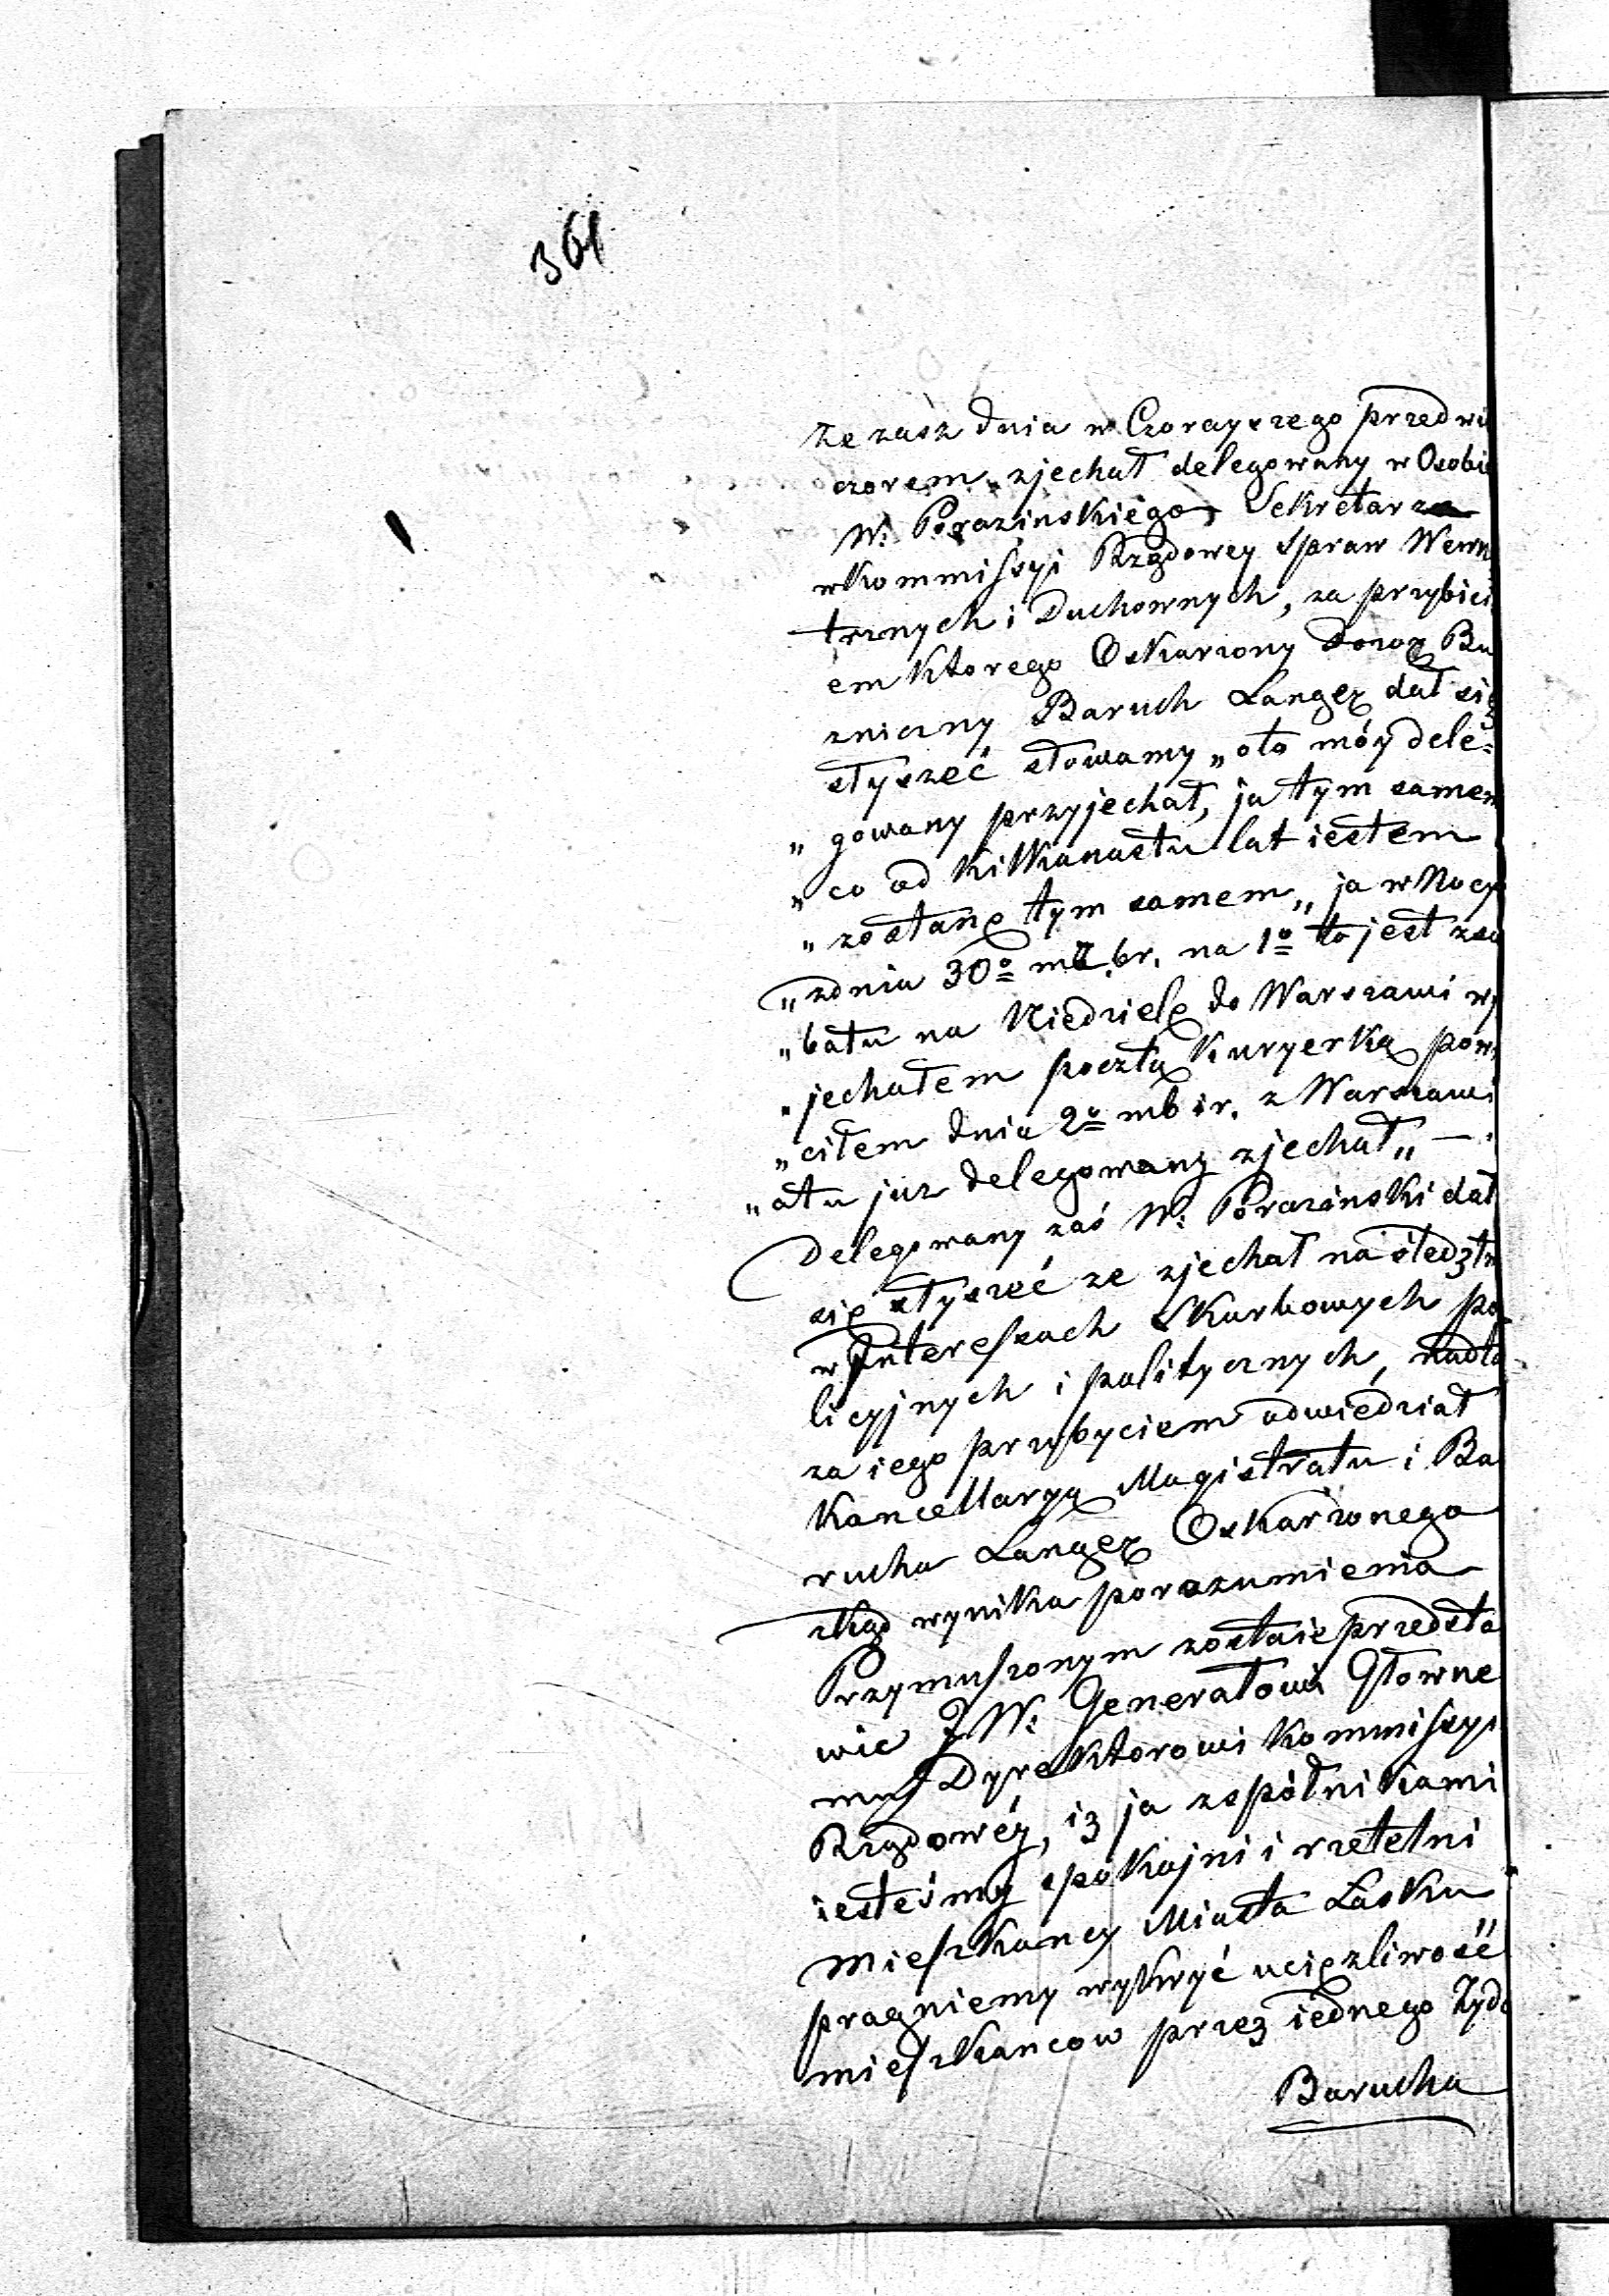 361
że zasz dnia wCzorayszego przedwie
czorem zjechał delegowany w Osobie
W: Porazinskiego Sekretarza
w Kommissyi Rządowey Spraw Wewn
trznych i Duchownych, za przybici
em ktorego Oskarzony Dozor Bu
zniczny Baruch Langer dał się
słyszeć słowamy „oto móy dele=
„gowany przyjechał, ja tym samem
„co od kilkunastu lat iestem
„zostanę tym samem„ ja w Nocy
„zdnia 30º mb. br. na 1º to jest zso
„batu na Niedzielę do Warszawi wy
„jechałem pocztą Kuryerką pow
„ciłem dnia 2º mb ir. z Warszawi
„a tu juz delegowany zjechał„ —
Delegowany zaś W: Porazinski dał
się słyszeć ze zjechał na śledztw
w Interessach Skarbowych po
licyjnych i politycznych, nadto
za iego przybyciem odwiedział
Kancellaryą Magistratu i Ba
rucha Langer Oskarżonego
zkąd wynika porozumienia
Przymuszonym zostaie przedsta
wic J W: Generałowi Głowne
mu Dyrektorowi Kommissyi
Rządowéy, iz ja zspółnikami
iesteśmy spokojni i rzetelni
Mieszkancy Miasta Łasku
pragniemy wykryć uciężliwość
mieszkancow przez iednego Żyda
Barucha